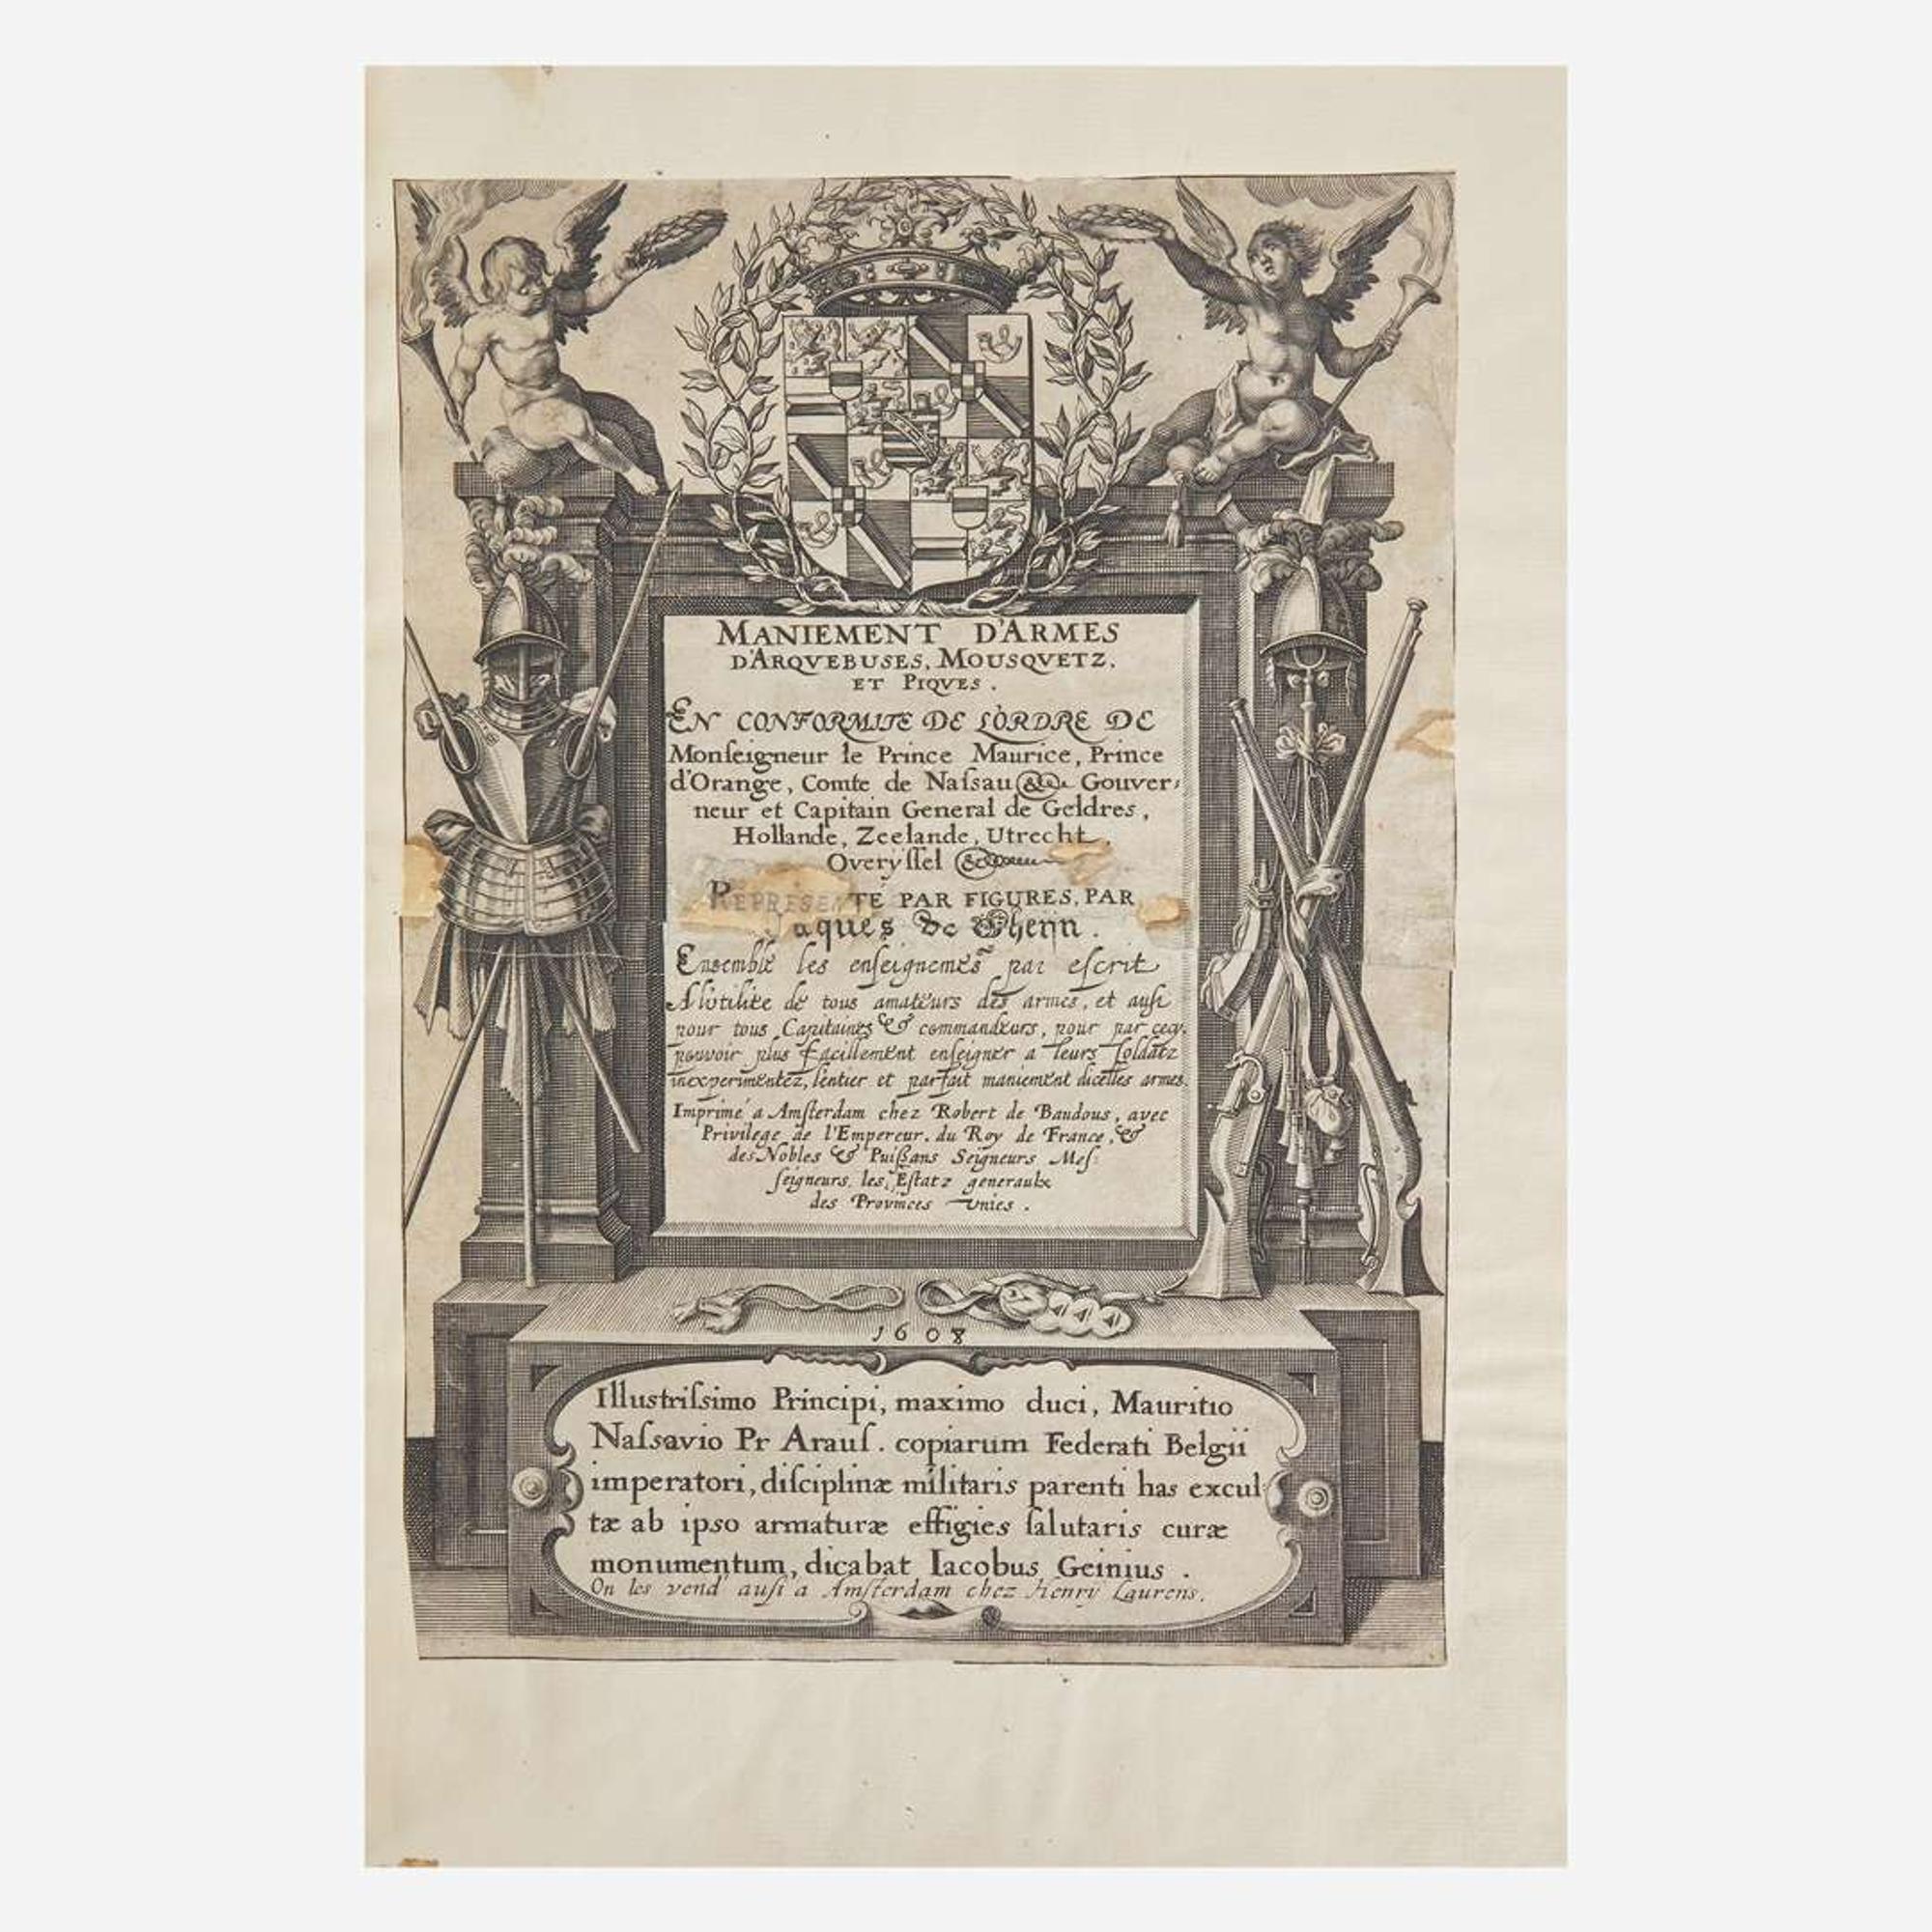 MANIEMENT D'ARMES
D'ARQVEBUSES, MOUSQVETZ.
ET PIQVES.
EN CONFORMITE DE LÒRDRE DE
Monſeigneur le Prince Maurice, Prince
d'Orange, Comte de Naſsau &c. Gouver⸗
neur et Capitain General de Geldres,
Hollande, Zeelande, Utrecht,
Overÿſſel &c.
REPRESENTÉ PAR FIGURES, PAR
aques de Gheijn.
Ensemble les enſeignemẽs par eſcrit
A lùtilite de tous amateurs des armes, et auſi
pour tous Capitaines & commandeurs, pour par cecy.
pouvoir plus facillement enſeigner a leurs ſoldatz
inexperimentez, l'entier et parfait maniement dicelles armes.
Imprimé a Amſterdam chez Robert de Baudous, avec
Privilege de l'Empereur, du Roy de France, &
des Nobles & Puiſsans Seigneurs Meſ⸗
ſeigneurs les Eſtatz generaulx
des Provinces Unies.
1608
Illustriſsimo Principi, maximo duci, Mauritio
Naſsavio Pr Arauſ. copiarum Federati Belgii
imperatori, diſciplinæ militaris parenti has excul
tæ ab ipso armaturæ effigies ſalutaris curæ
monumentum, dicabat Iacobus Geinius.
On les vend auſi a Amſterdam chez Henry Laurens.